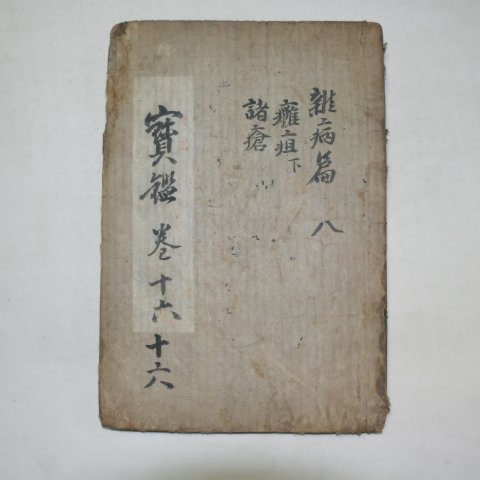 雜病篇 八
癰疽下
諸瘡
寶鑑 卷十六
十六